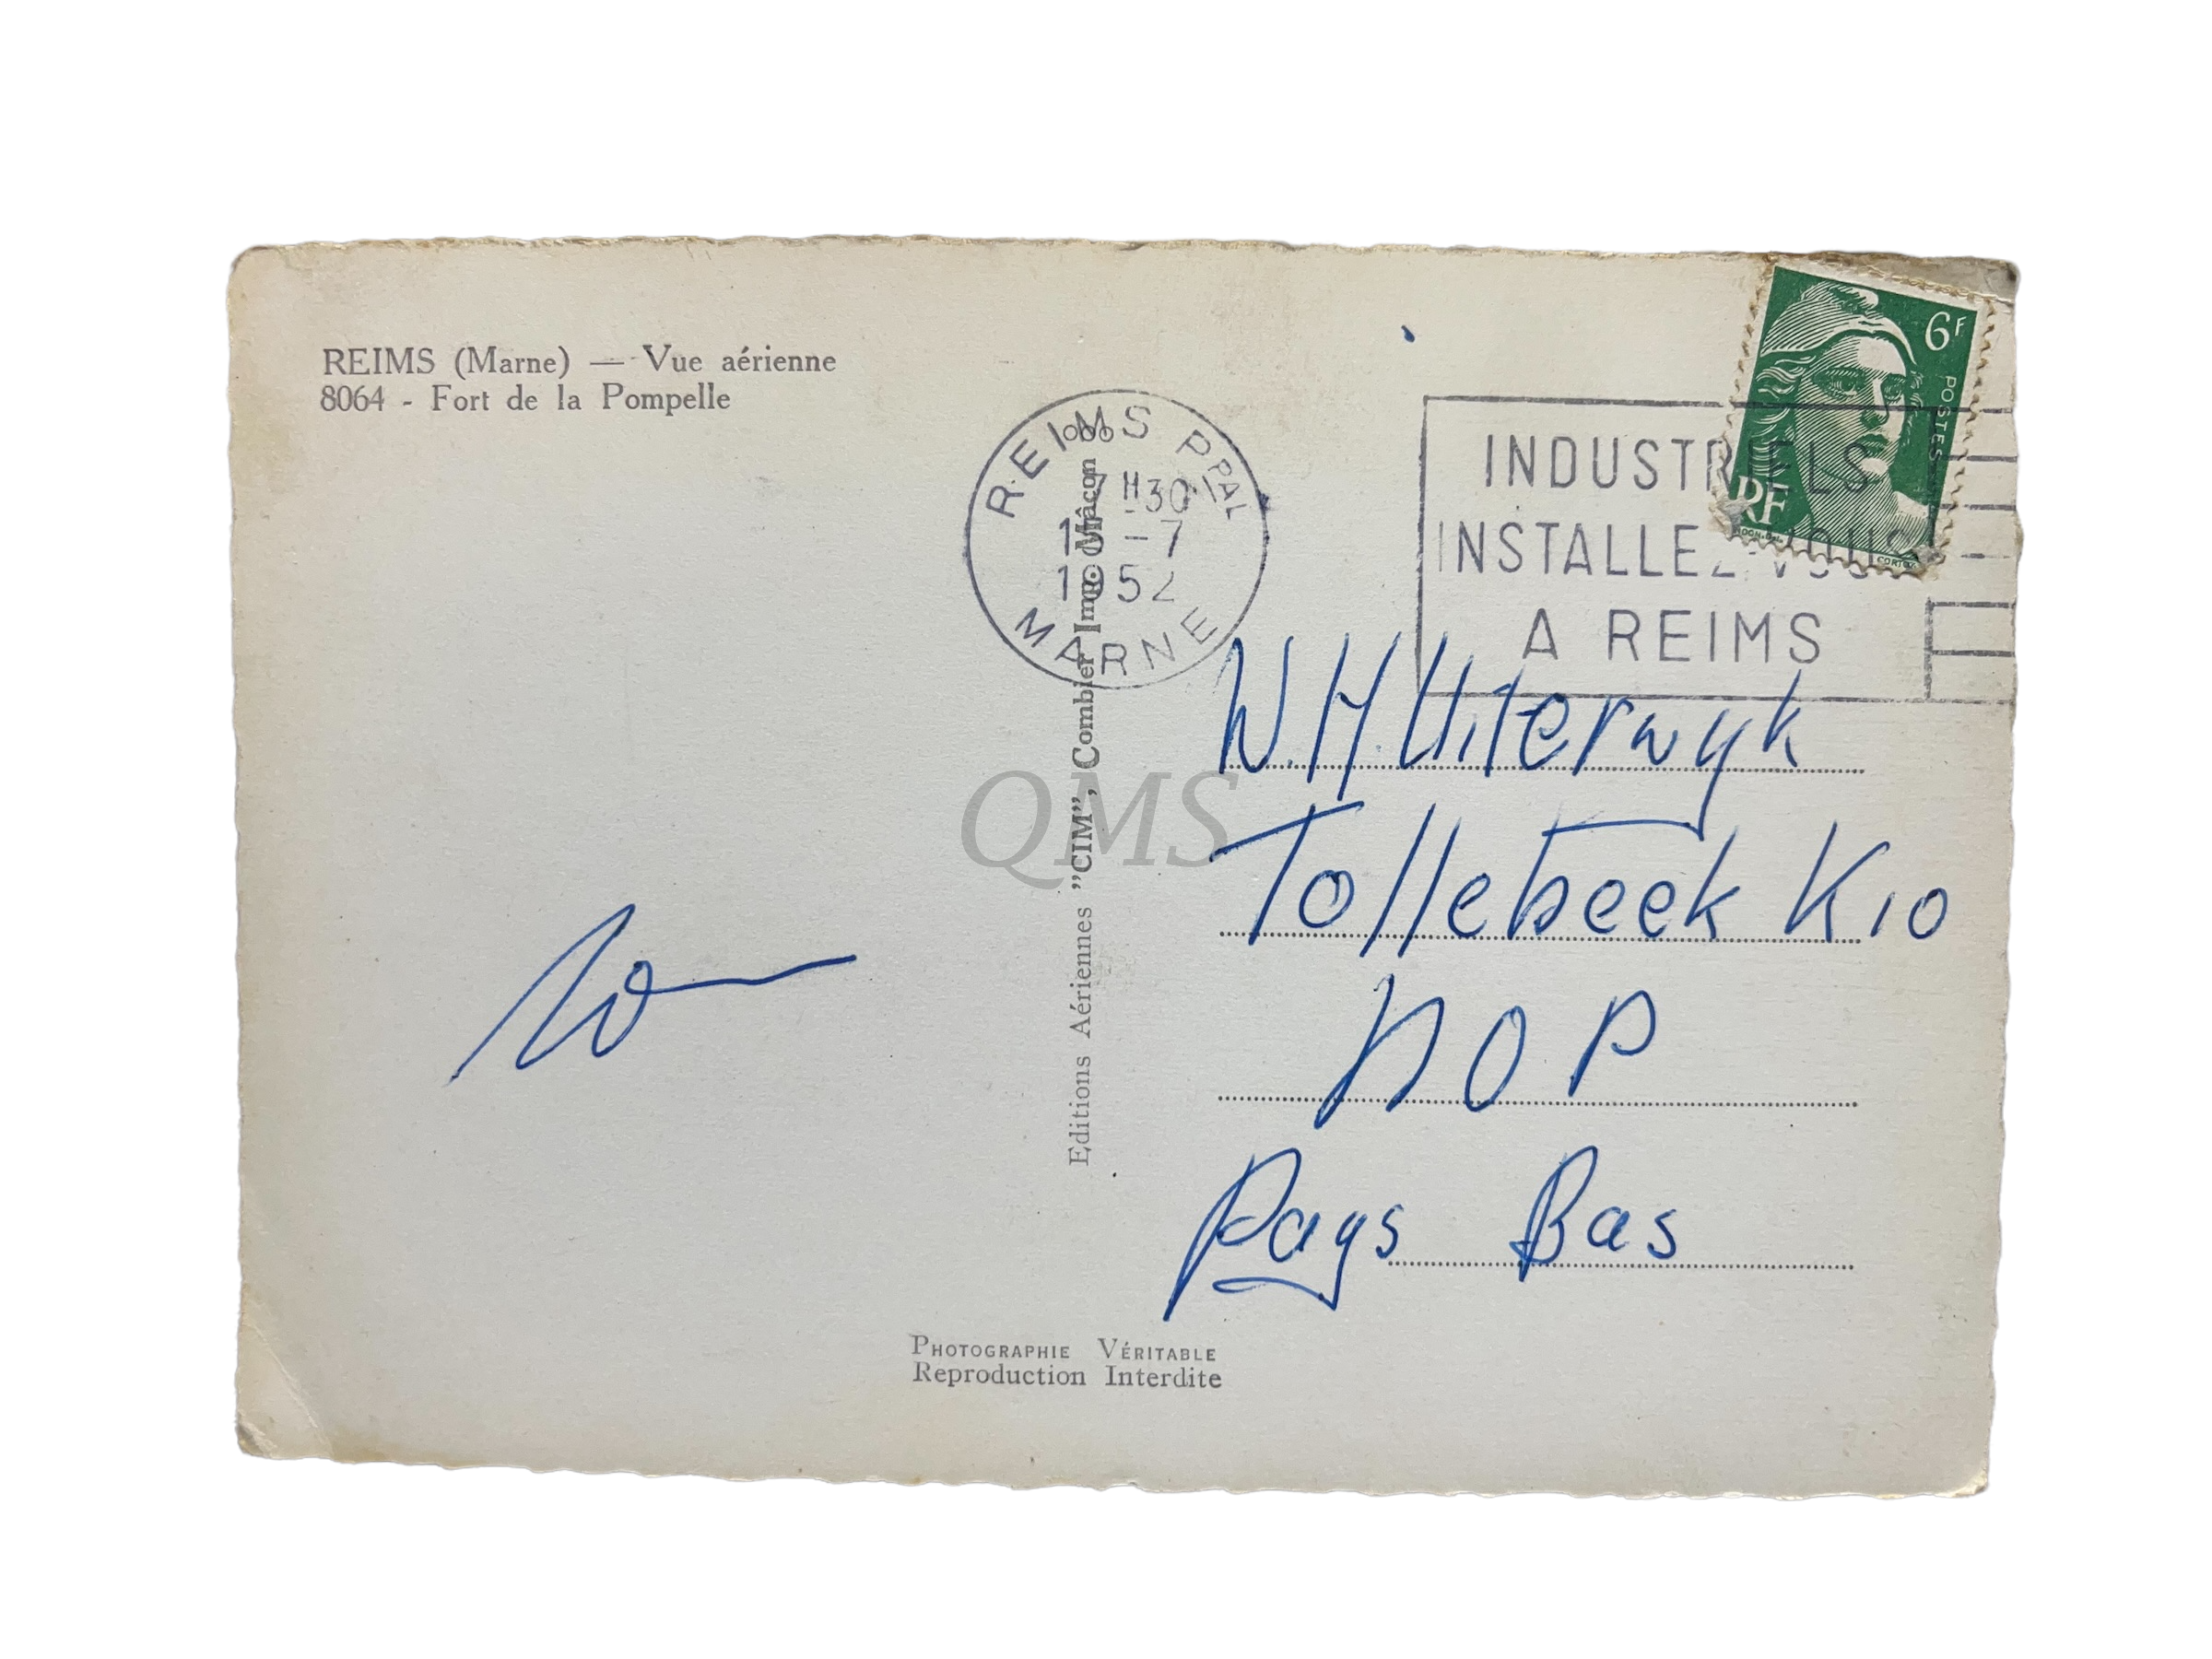 REIMS (Marne) — Vue aérienne
8064 - Fort de la Pompelle
REIMS PPAL
H30
-7
1952
MARNE
INDUSTRIELS
INSTALLEZ-VOUS
A REIMS
6F
POSTES
RF
W.H. Uiterwyk
Tollebeek K10
NOP
Pays Bas
Editions Aériennes "CIM", Combier Imp. Mâcon
QMS
PHOTOGRAPHIE VÉRITABLE
Reproduction Interdite